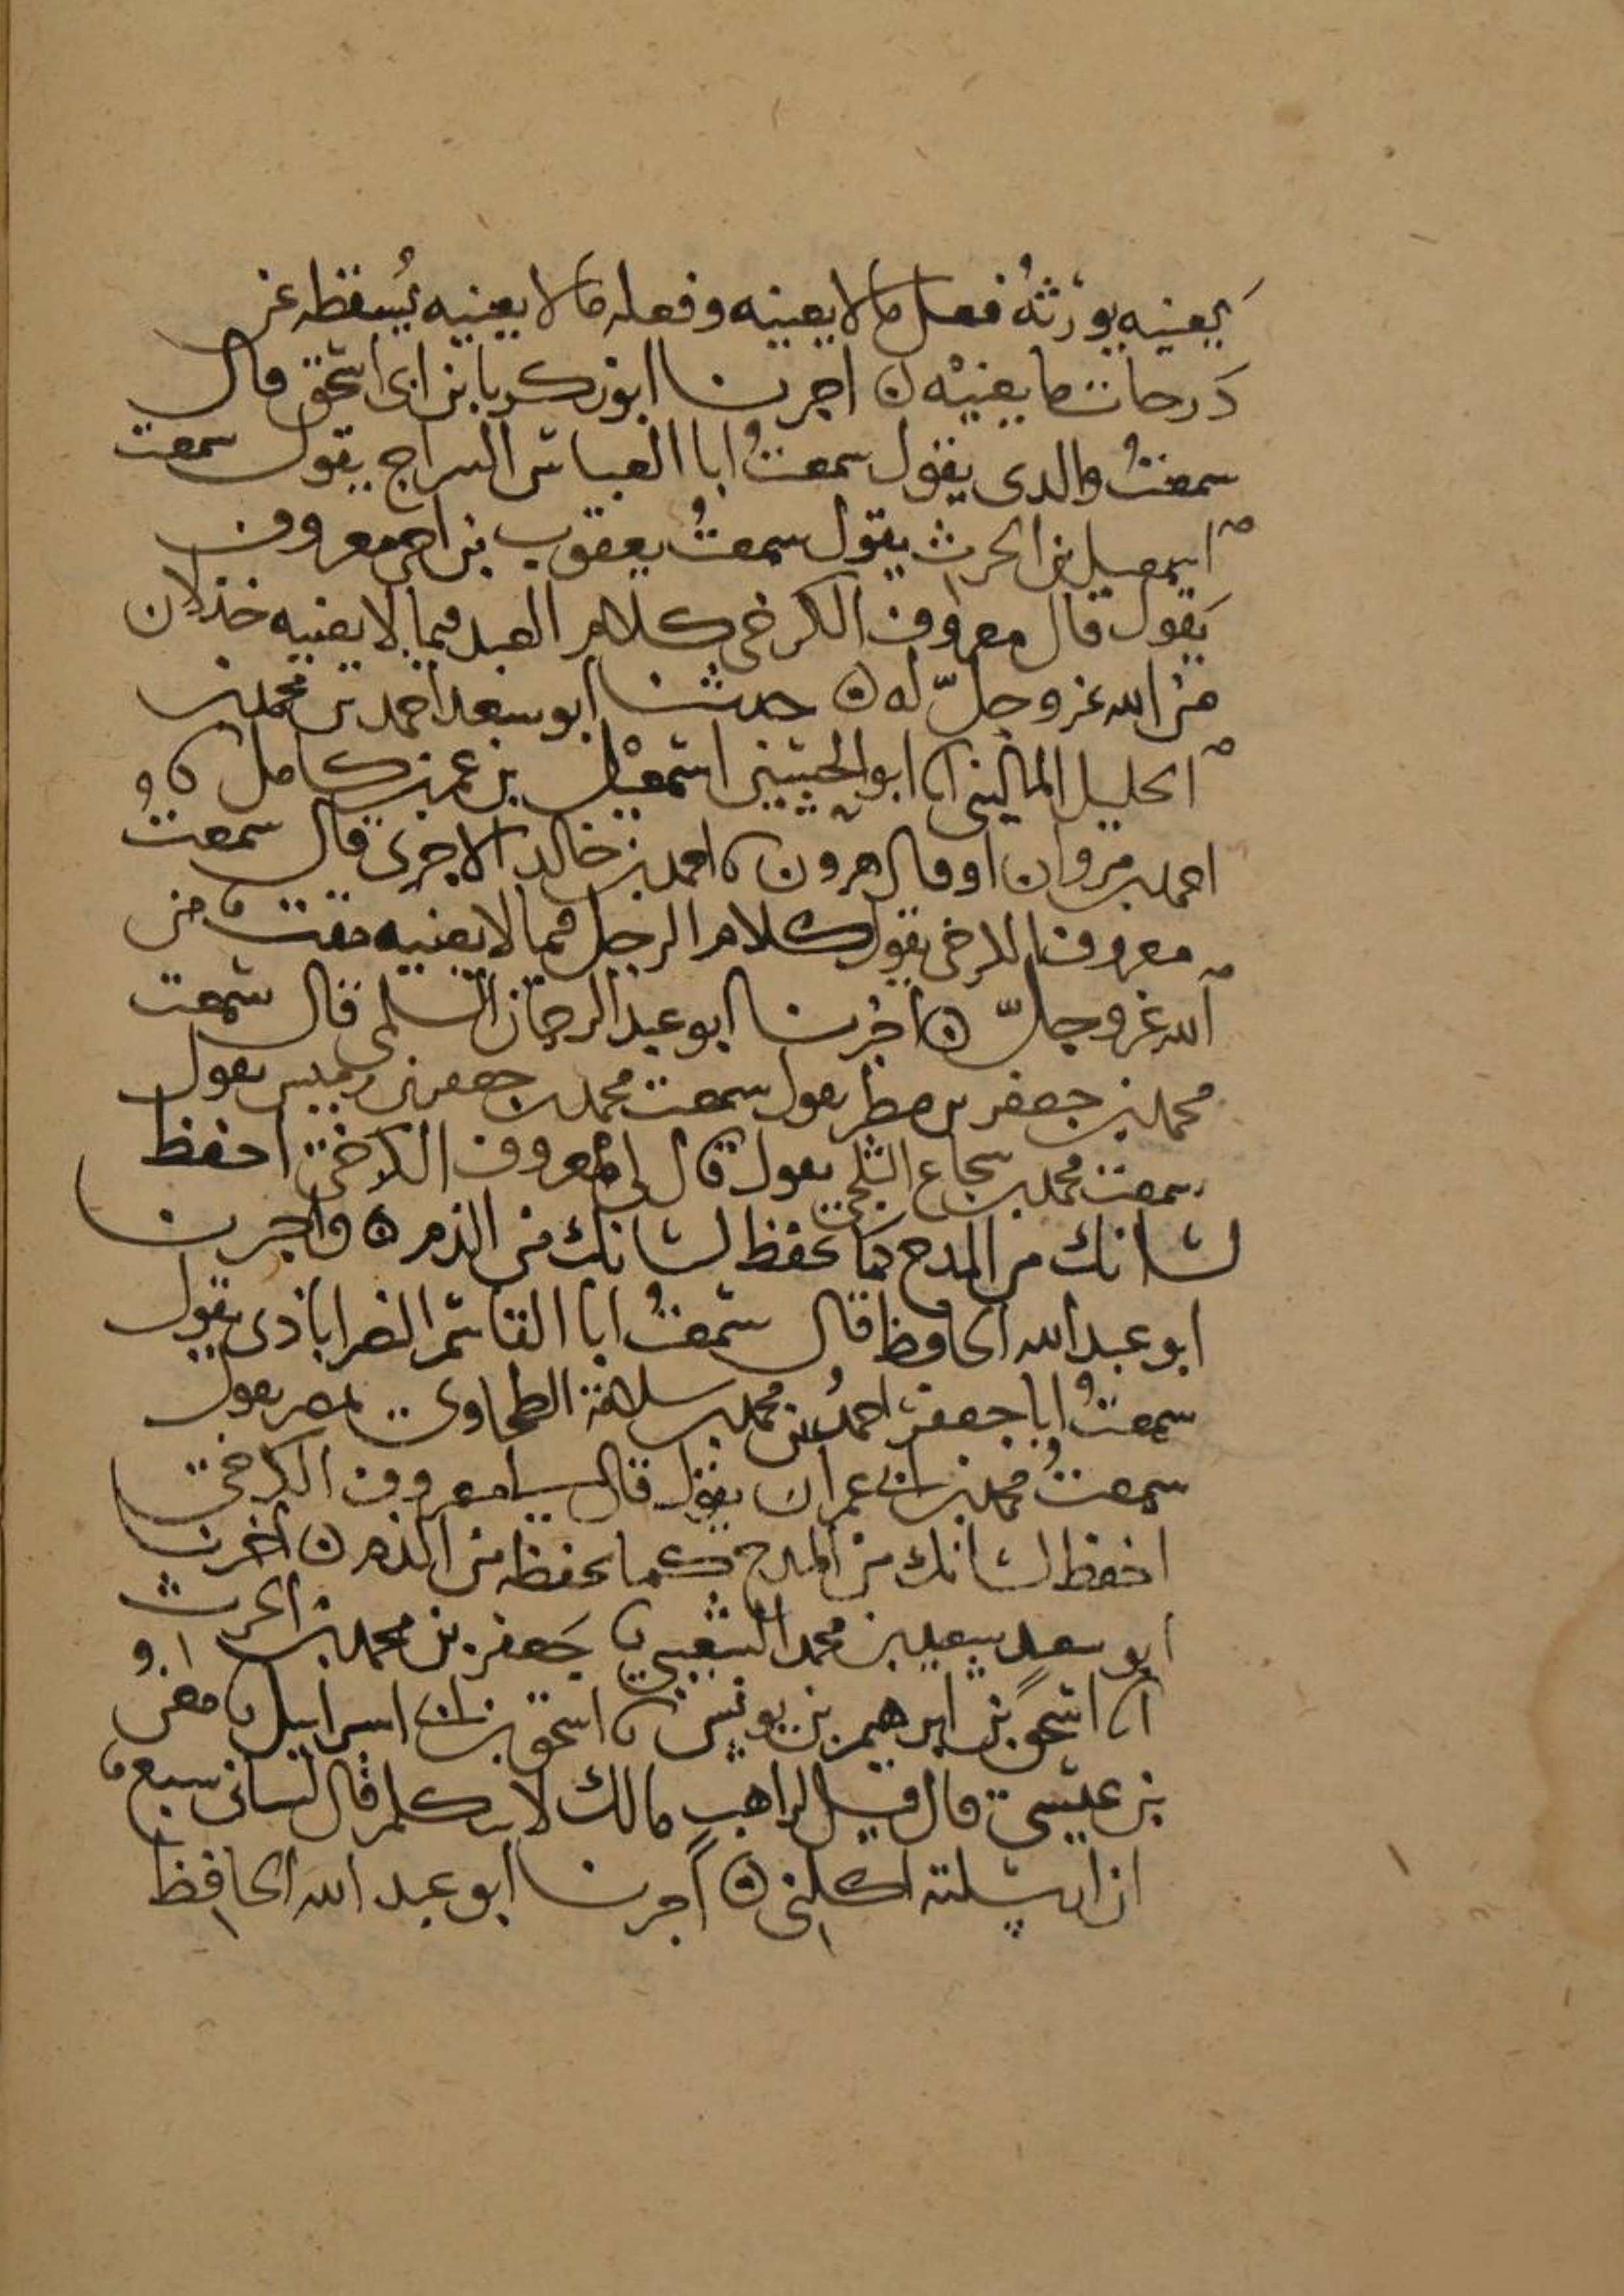 يعنيه يورثه فعل ما لا يعنيه وفعله ما لا يعنيه يسقطه عن
درجات ما يعنيه ه اخبرنا ابو زكريا بن ابي اسحق قال
سمعت والدي يقول سمعت ابا العباس السراج يقول سمعت
اسمعيل بن الحرث يقول سمعت يعقوب بن اخي معروف
يقول قال معروف الكرخي كلام العبد فيما لا يعنيه خذلان
من الله عز وجل له ه حدثنا ابو سعد احمد بن محمد بن
الخليل الماليني انا ابو الحسين اسمعيل بن عمر بن كامل نا
احمد بن مروان او قال هرون نا احمد بن خالد الاجري قال سمعت
معروفا الكرخي يقول كلام الرجل فيما لا يعنيه مقت من
الله عز وجل ه اخبرنا ابو عبد الرحمان السلمي قال سمعت
محمد بن جعفر بن مطر يقول سمعت محمد بن جعفر بن رميس يقول
سمعت محمد بن شجاع الثلجي يقول قال لي معروف الكرخي احفظ
لسانك من المدح كما تحفظ لسانك من الذم ه واخبرنا
ابو عبد الله الحافظ قال سمعت ابا القاسم النصراباذي يقول
سمعت ابا جعفر احمد بن محمد بن سلامة الطحاوي بمصر يقول
سمعت محمد بن ابي عمران يقول قال لنا معروف الكرخي
احفظ لسانك من المدح كما تحفظه من الذم ه اخبرنا
ابو سعد سعيد بن محمد الشعيبي نا جعفر بن محمد بن الحرث
انا اسحق بن ابرهيم بن يونس نا اسحق بن ابي اسرايل نا معن
بن عيسى قال قيل لراهب ما لك لا تتكلم قال لساني سبع
ان ارسلته اكلني ه اخبرنا ابو عبد الله الحافظ